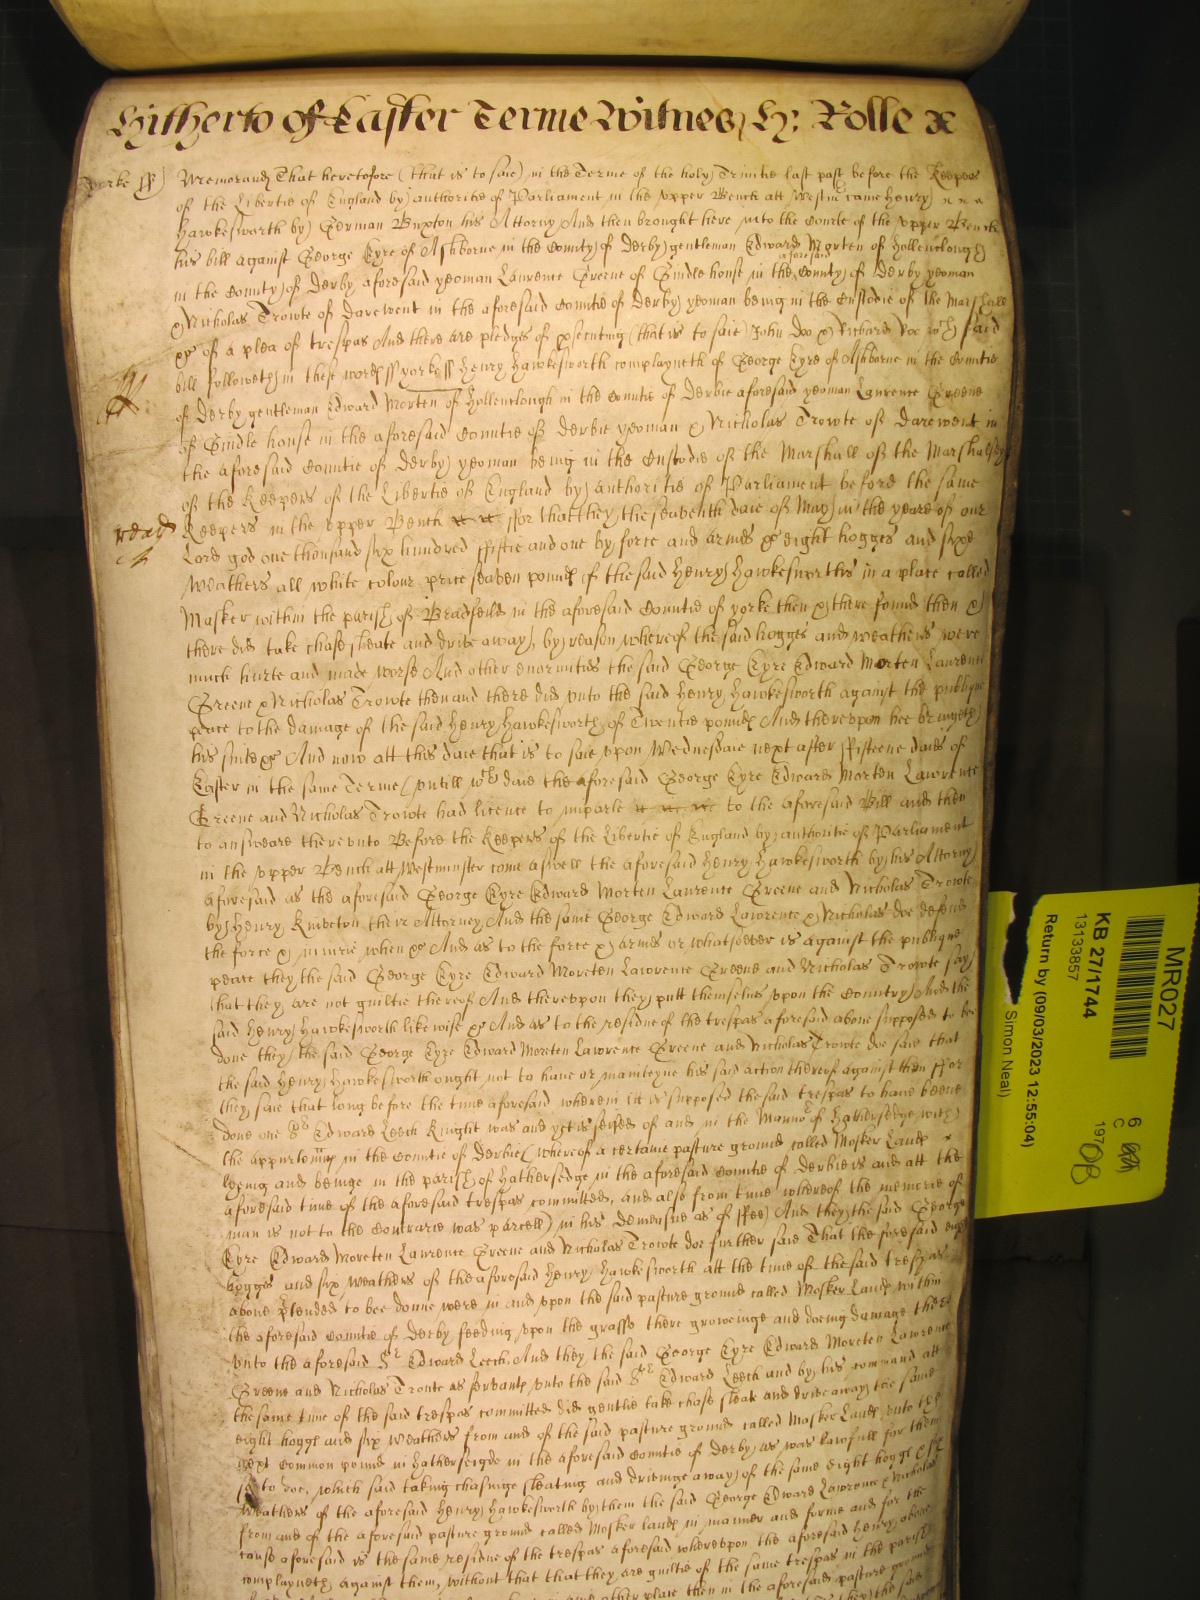 Hitherto of Easter Terme Witnes H: Rolle
Yorke ss Memorand That heretofore (that is to saie) in the Terme of the holy Trinitie last past before the Keepers
of the Libertie of England by authoritie of Parliament in the upper Bench att Westm came Henry
Hawkesworth by German Buxton his Attorny And then brought here into the Courte of the upper Bench
his bill against George Eyre of Ashborne in the County of Derby gentleman Edward Morten of Hollenclough
in the County of Derby aforesaid yeoman Laurence Greene of Gindle house in the aforesaid County of Derby yeoman
& Nicholas Trowte of Darewent in the aforesaid Countie of Derby yeoman being in the Custodie of the Marshall
&c of a plea of trespas And there are pledges of &secuting (that is to saie) John Doo & Richard Roe wch said
bill followeth in these words ss yorke ss Henry Hawkesworth complayneth of George Eyre of Ashborne in the Countie
of Derby gentleman Edward Morten of Hollenclough in the Countie of Derbie aforesaid yeoman Laurence Greene
of Gindle house in the aforesaid Countie of Derbie yeoman & Nicholas Trowte of Darewent in
the aforesaid Countie of Derby yeoman being in the Custodie of the Marshall of the Marshalsey
of the Keepers of the Libertie of England by authoritie of Parliament before the same
Keepers in the upper Bench ffor that they the seaventh daie of May in the yeare of our
Lord god one thousand six hundred ffiftie and one by force and armes &c eight hogges and sixe
weathers all white colour price seaven pounds of the said Henry Hawkesworthes in a place called
Masker within the parish of Bradfeild in the aforesaid Countie of yorke then & there found then &
there did take chase sleate and drive away by reason whereof the said hogges and weathers were
much hurte and made worse And other enormities the said George Eyre Edward Morten Laurence
Greene & Nicholas Trowte then and there did unto the said Henry Hawkesworth against the publique
peace to the damage of the said Henry Hawkesworth of Twentie pounds And thereupon hee bringeth
his suite &c And now att this daie that is to saie upon Wednesdaie next after ffifteene daies of
Easter in the same Terme (untill wch daie the aforesaid George Eyre Edward Morten Lawrence
Greene and Nicholas Trowte had licence to imparle to the aforesaid Bill and then
to answeare thereunto Before the Keepers of the Libertie of England by authoritie of Parliament
in the upper Bench att Westminster come aswell the aforesaid Henry Hawkesworth by his Attorny
aforesaid as the aforesaid George Eyre Edward Morten Laurence Greene and Nicholas Trowte
by Henry Kniveton their Attorney And the same George Edward Lawrence & Nicholas doe defend
the force & iniurie when &c And as to the force & armes or whatsoever is against the publique
peace they the said George Eyre Edward Moreten Lawrence Greene and Nicholas Trowte say
that they are not guiltie thereof And thereupon they putt themselves upon the Country And the
said Henry Hawkesworth likewise &c And as to the residue of the trespas aforesaid above supposed to bee
done they the said George Eyre Edward Moreten Lawrence Greene and Nicholas Trowte doe saie that
the said Henry Hawkesworth ought not to have or mainteyne his said action thereof against them ffor
they saie that long before the time aforesaid wherein itt is supposed the said trespas to have beene
done one Sr Edward Leech Knight was and yet is seised of and in the Mannor of Hathersedge with
the appurtennces in the Countie of Derbie (whereof a certaine pasture ground called Mosker Lands
lyeing and beinge in the parish of Hathersedge in the aforesaid Countie of Derbie is and att the
aforesaid time of the aforesaid trespas committed, and also from time whereof the memorie of
man is not to the Contrarie was parcell) in his demeasne as of ffee) And they the said George
Eyre Edward Moreten Laurence Greene and Nicholas Trowte doe further saie That the foresaid eight
hogges and six weathers of the aforesaid Henry Hawkesworth att the time of the said trespas
above ptended to bee donne were in and upon the said pasture ground called Mosker Lands within
the aforesaid Countie of Derby feeding upon the grasse there groweinge and doeing damage there
unto the aforesaid Sr Edward Leech. And they the said George Eyre Edward Moreten Lawrence
Greene and Nicholas Troute as servants unto the said Sr Edward Leech and by his command att
the same time of the said trespas committed did gentlie take chase sleat and drive away the same
eight hoggs and six weathers from and of the said pasture ground called Masker Lands unto the
next Common pound in Hatherseigde in the aforesaid Countie of Derby, as was lawfull for them
so to doe, which said taking chasinge sleating and driveinge away of the same eight hoggs & six
weathers of the aforesaid Henry Hawkesworth by them the said George Edward Lawrence & Nicholas
from and of the aforesaid pasture ground called Mosker lands in manner and forme and for the
cause aforesaid is the same residue of the trespas aforesaid whereupon the aforesaid Henry above
complayneth against them, without that that they are guiltie of the same trespas in the parish
other place then in the aforesaid pasture ground
MR027
KB 27/1744
13133857
Return by (09/03/2023 12:55:04)
Simon Neal)
6
C
197